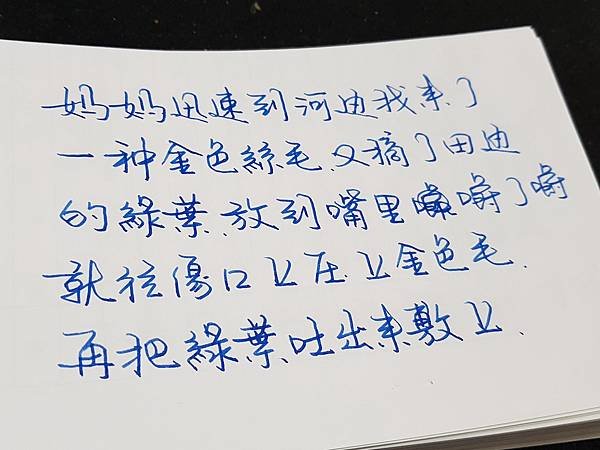 妈妈迅速到河边找来了
一种金色絲毛,又摘了田边
的綠葉,放到嘴里嚼嚼了嚼
就往傷口上压上金色毛,
再把綠葉吐出来敷上.